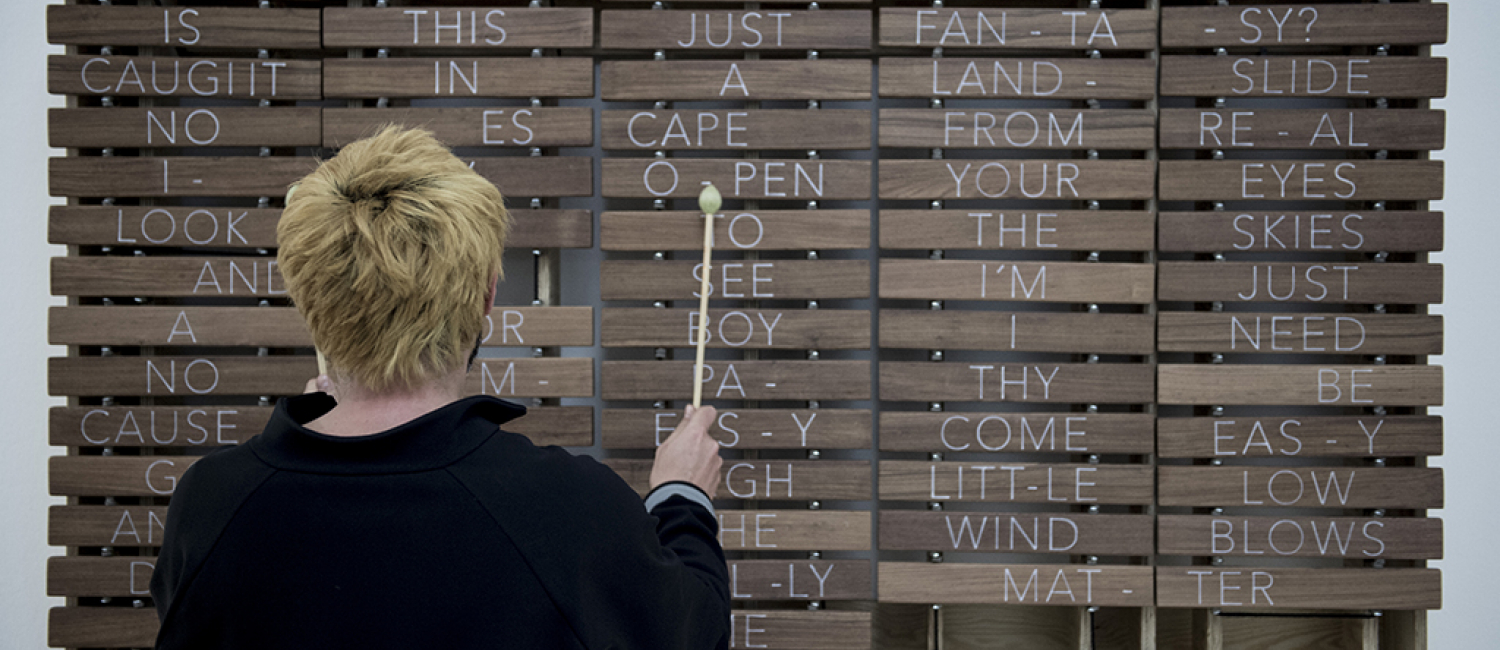 IS THIS JUST FAN - TA - SY?
CAUGIIT IN A LAND - SLIDE
NO ES CAPE FROM RE - AL
I - O - PEN YOUR EYES
LOOK TO THE SKIES
AND SEE I'M JUST
A OR BOY I NEED
NO M - PA - THY BE
CAUSE EAS - Y COME EAS - Y
GH LITT-LE LOW
HE WIND BLOWS
L-LY MAT - TER